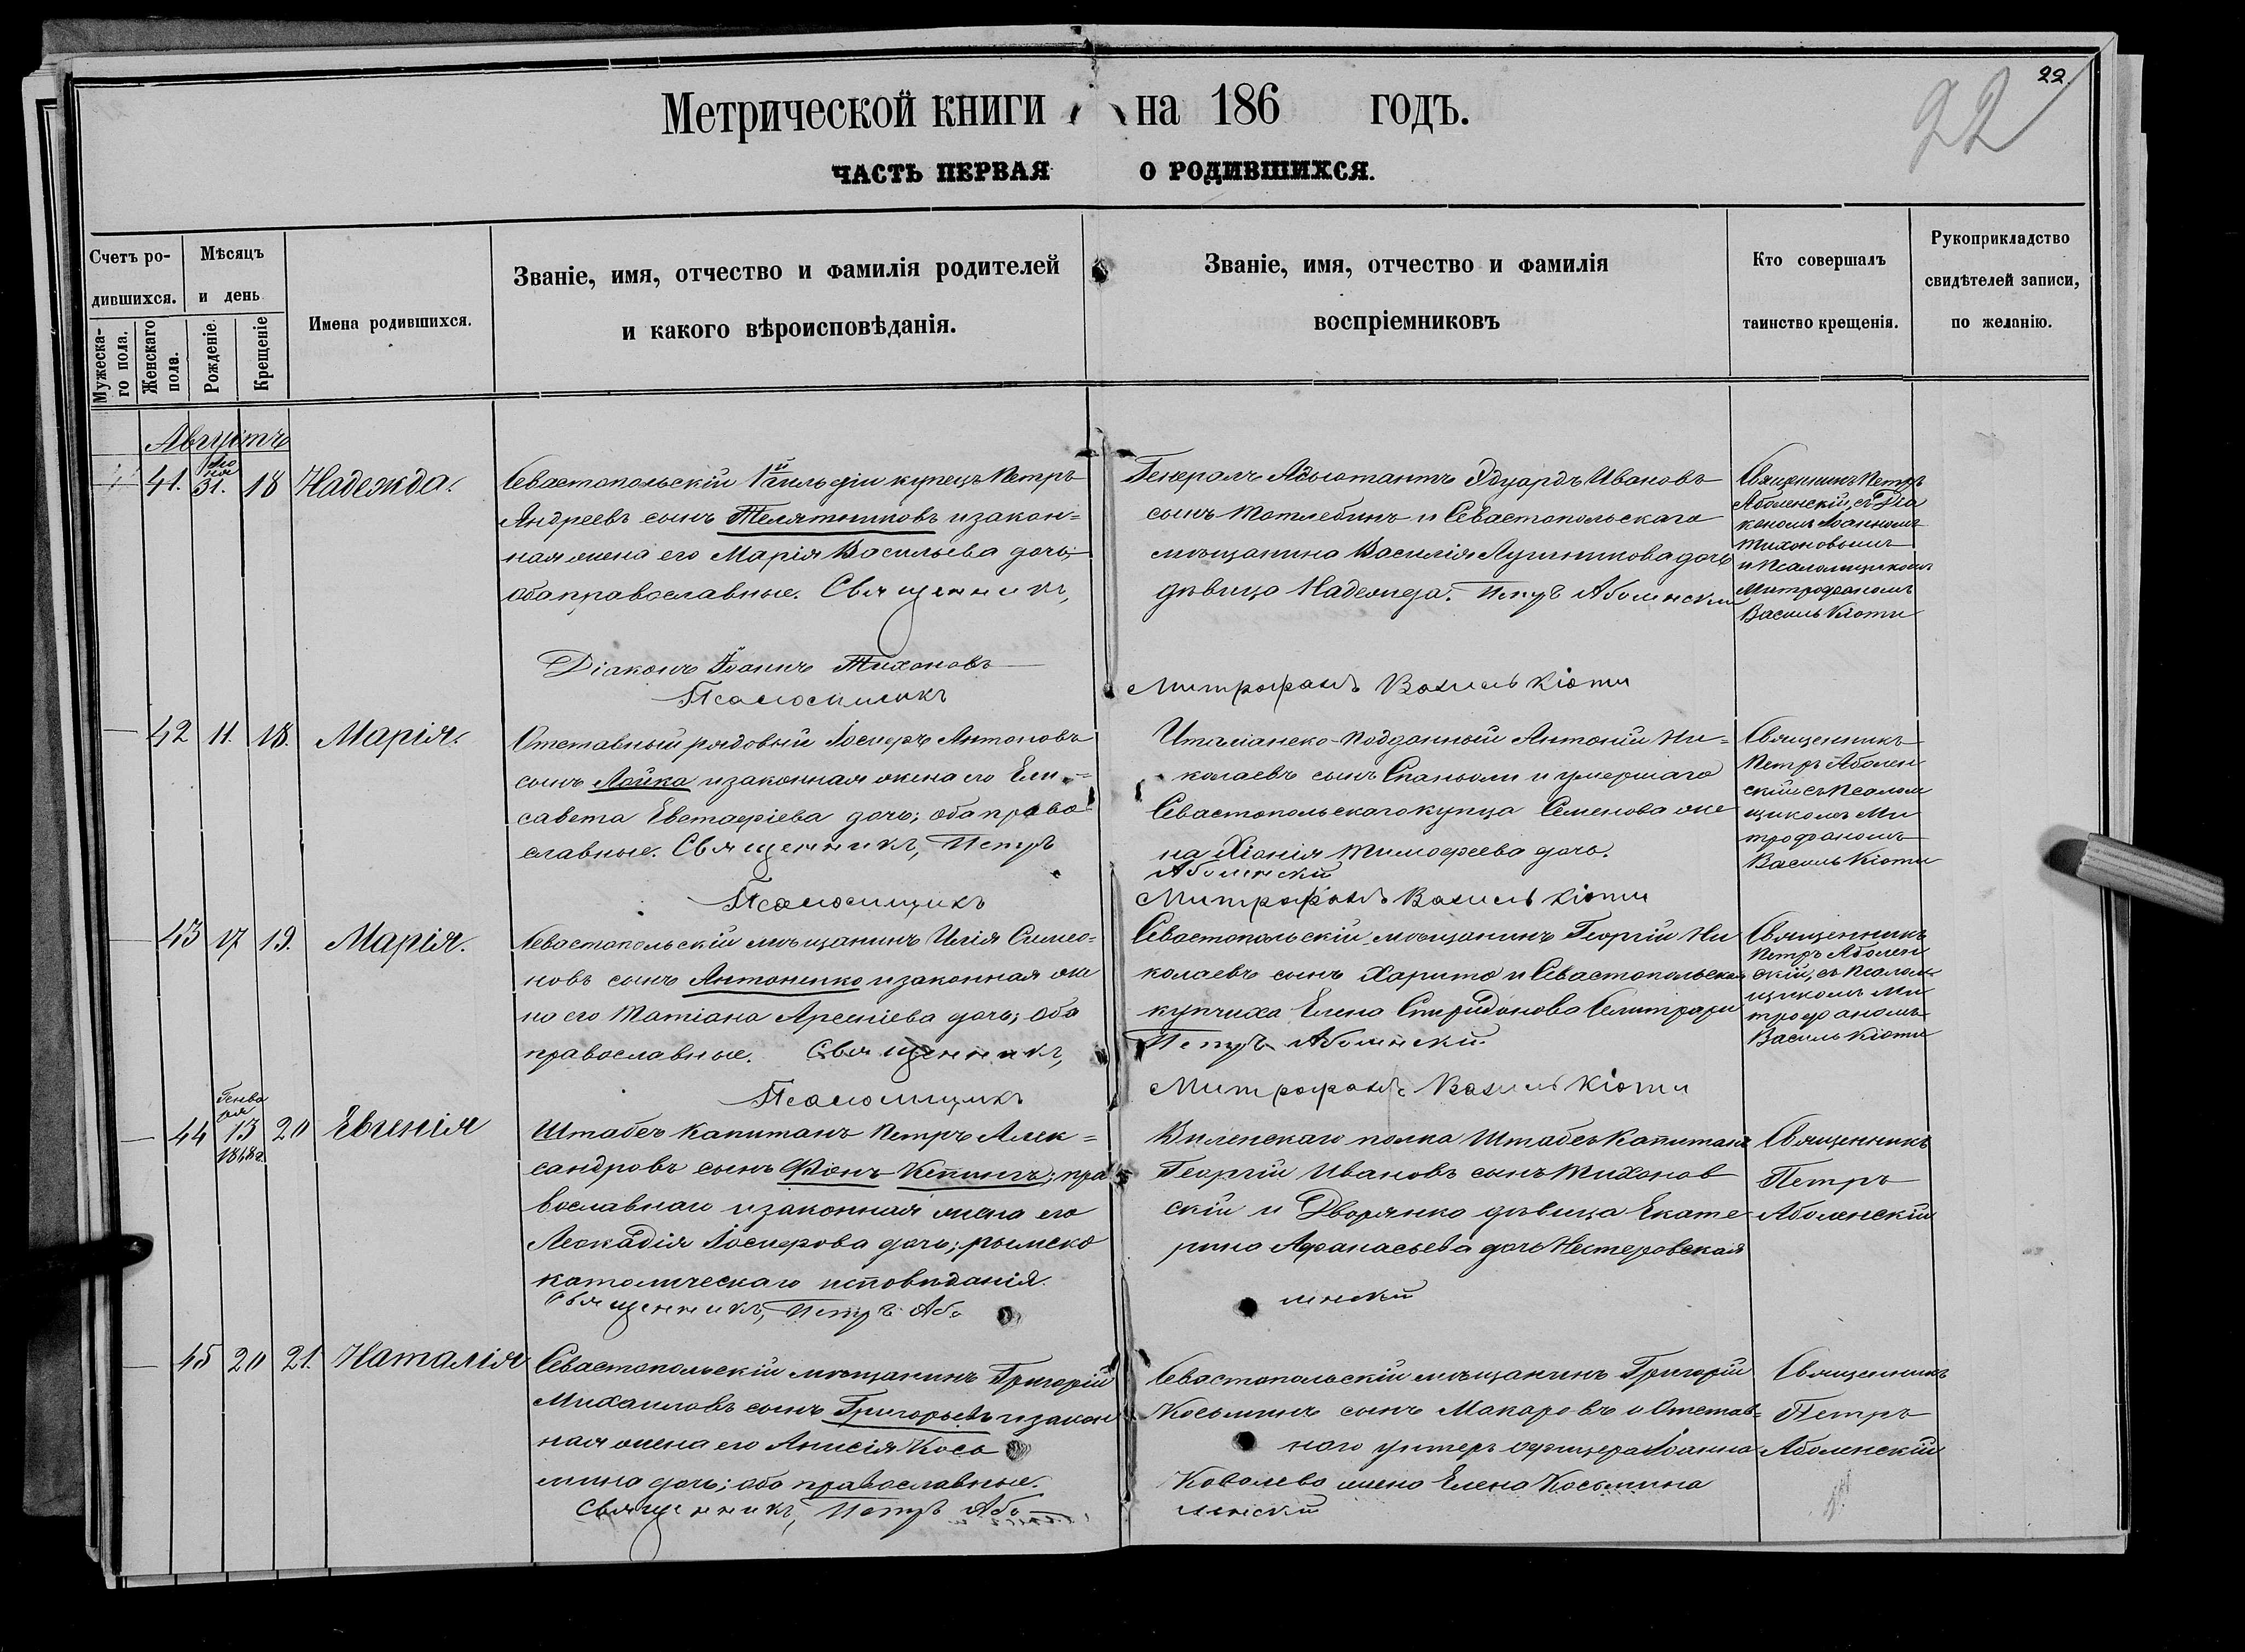 22.
22
Метрической книги на 186 годъ.
ЧАСТЬ ПЕРВАЯ О РОДИВШИХСЯ.
Счетъ ро-
дившихся.
Мужеска-
го пола.
Женскаго
пола.
Мѣсяцъ
и день
Рожденіе.
Крещеніе
Имена родившихся.
Званіе, имя, отчество и фамилія родителей
и какого вѣроисповѣданія.
Званіе, имя, отчество и фамилія
воспріемниковъ
Кто совершалъ
таинство крещенія.
Рукоприкладство
свидѣтелей записи,
по желанію.
Августъ
41. 31. 18 Надежда.
Севастопольскій 1й гильдіи купецъ Петръ
Андреевъ сынъ Телятниковъ и закон=
ная жена его Марія Васильева дочь;
оба православные. Священникъ,
Діаконъ Іоаннъ Тихоновъ
Псаломщикъ
Генералъ Адъютантъ Эдуардъ Ивановъ
сынъ Тотлебинъ и Севастопольскаго
мѣщанина Василія Лушникова дочь
дѣвица Надежда. Петръ Аболенскій
Митрофанъ Василькіоти
Священникъ Петръ
Аболенскій, съ Діа
кономъ Іоанномъ
Тихоновымъ
и Псаломщикомъ
Митрофаномъ
Василькіоти
42 11. 18. Марія.
Отставный рядовый Іосифъ Антоновъ
сынъ Лойка и законная жена его Ели=
савета Евстафіева дочь; оба право
славные. Священникъ, Петръ
Псаломщикъ
Италіанско-подданный Антоній Ни=
колаевъ сынъ Спаньоли и умершаго
Севастопольскаго купца Семенова же
на Хіонія Тимофеева дочь.
Аболенскій
Митрофанъ Василькіоти
Священникъ
Петръ Аболен
скій съ Псалом
щикомъ Ми
трофаномъ
Василькіоти
43 17 19. Марія.
Севастопольскій мѣщанинъ Илія Симео=
новъ сынъ Антоненко и законная же
на его Татіана Арсеніева дочь; оба
православные. Священникъ,
Псаломщикъ
Севастопольскій мѣщанинъ Георгій Ни
колаевъ сынъ Харито и Севастопольская
купчиха Елена Спиридонова
Петръ Аболенскій
Митрофанъ Василькіоти
Священникъ
Петръ Аболен
скій, съ Псалом
щикомъ Ми
трофаномъ
Василькіоти
Генва
ря
44 13 20 Евгенія
Штабсъ Капитанъ Петръ Алек=
сандровъ сынъ Фонъ Кепингъ; пра
вославнаго и законная жена его
Леокадія Іосифова дочь; римско
католическаго исповѣданія.
Священникъ, Петръ Або
Виленскаго полка Штабсъ Капитанъ
Георгій Ивановъ сынъ Тихонов
скій и Дворянка дѣвица Екате
рина Афанасьева дочь Нестеровская
ленскій
Священникъ
Петръ
Аболенскій
45 20 21. Наталія
Севастопольскій мѣщанинъ Григорій
Михаиловъ сынъ Григорьевъ и закон
ная жена его Анисія Кось
мина дочь; оба православные.
Священникъ, Петръ Або
Севастопольскій мѣщанинъ Григорій
Косьминъ сынъ Макаровъ и Отстав=
наго унтеръ офицера Іоанна
Ковалева жена Елена Косьмина
ленскій
Священникъ
Петръ
Аболенскій